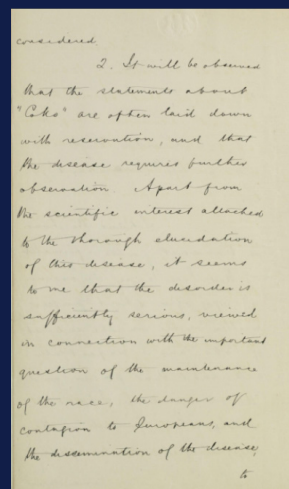 considered.
2. It will be observed
that the statements about
"Coko" are often laid down
with reservation, and that
the disease requires further
observation. Apart from
the scientific interest attached
to the thorough elucidation
of this disease, it seems
to me that the disorder is
sufficiently serious, viewed
in connection with the important
question of the maintenance
of the race, the danger of
contagion to Europeans, and
the dissemination of the disease,
to